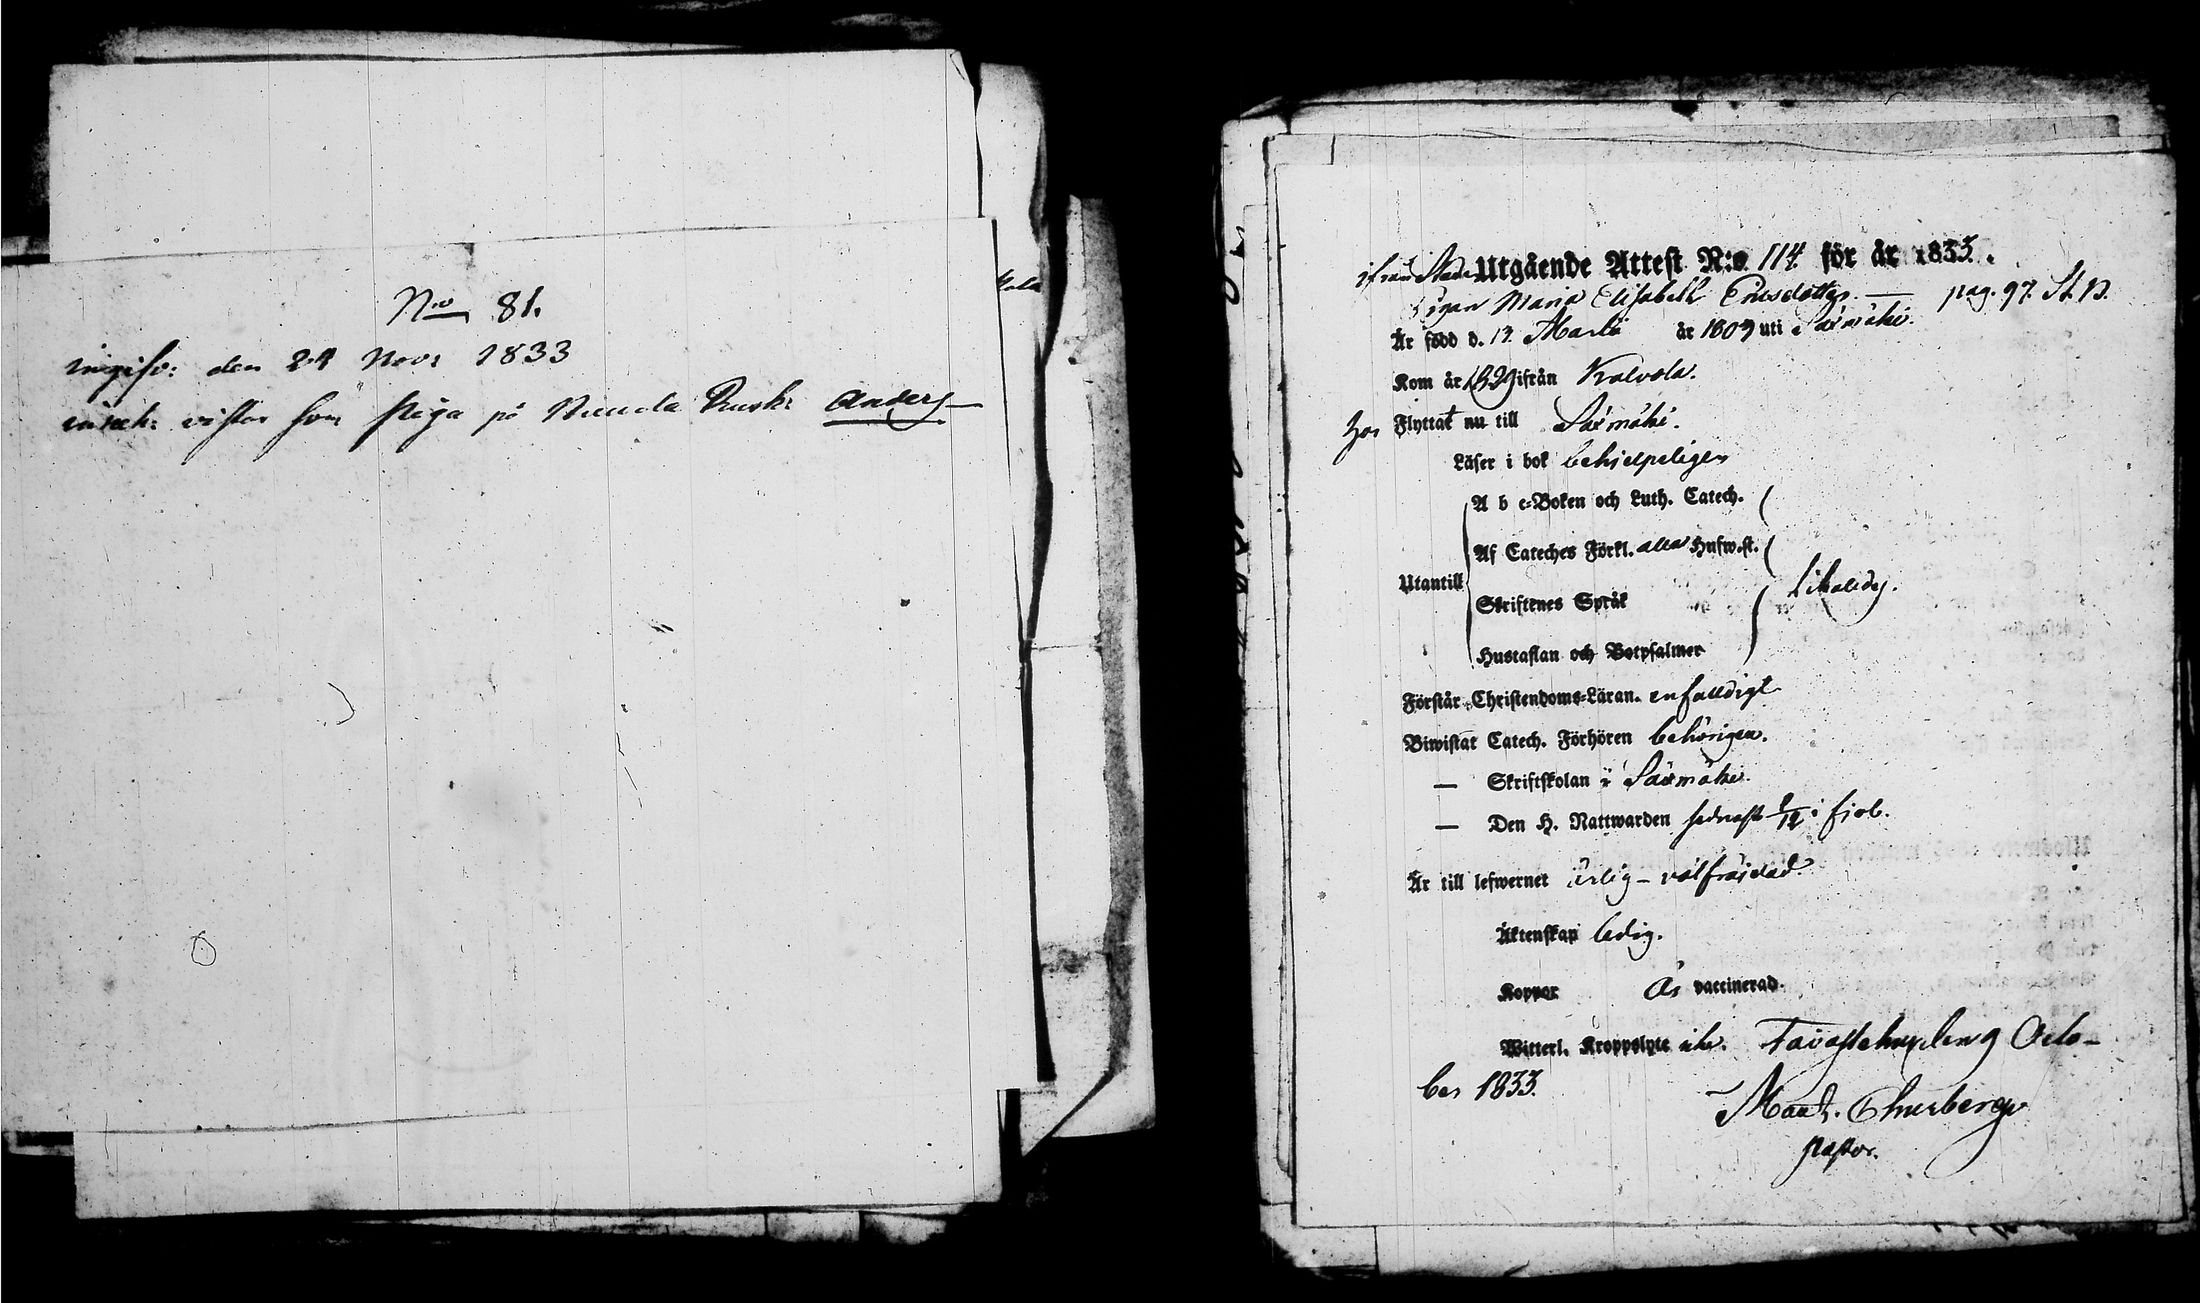 No 81.
ingifv: den 24 Nov: 1833
vistas som piga på Rusth: Anders
Utgående Attest N:o 114 för år 1833.
ifrån
Pigan Maria Elisabeth Ericsdotter. — pag. 97. St. B.
Är född d. 13 Martii år 1809 uti Sääxmäki.
Kom år 1829 ifrån Kalvola.
Flyttat nu till Sääxmäki.
Läser i bok behjelpeligen
A b c-Boken och Luth. Catech.
Af Cateches Förkl. alla Hufw.st.
Utantill
Skriftenes Språk
Likaledes.
Hustaflan och Botpsalmer
Förstår Christendoms-Läran. enfaldigt
Biwistat Catech. Förhören behörigen.
— Skriftskolan i Sääxmäki.
— Den H. Nattwarden sednast i fjol.
Är till lefwernet ärlig - välfräjdad
Äktenskap ledig.
Koppor Är vaccinerad.
Witterl. Kroppslyte icke. Tavastehus den 9 Octo-
ber 1833.
Churberg
Pastor.